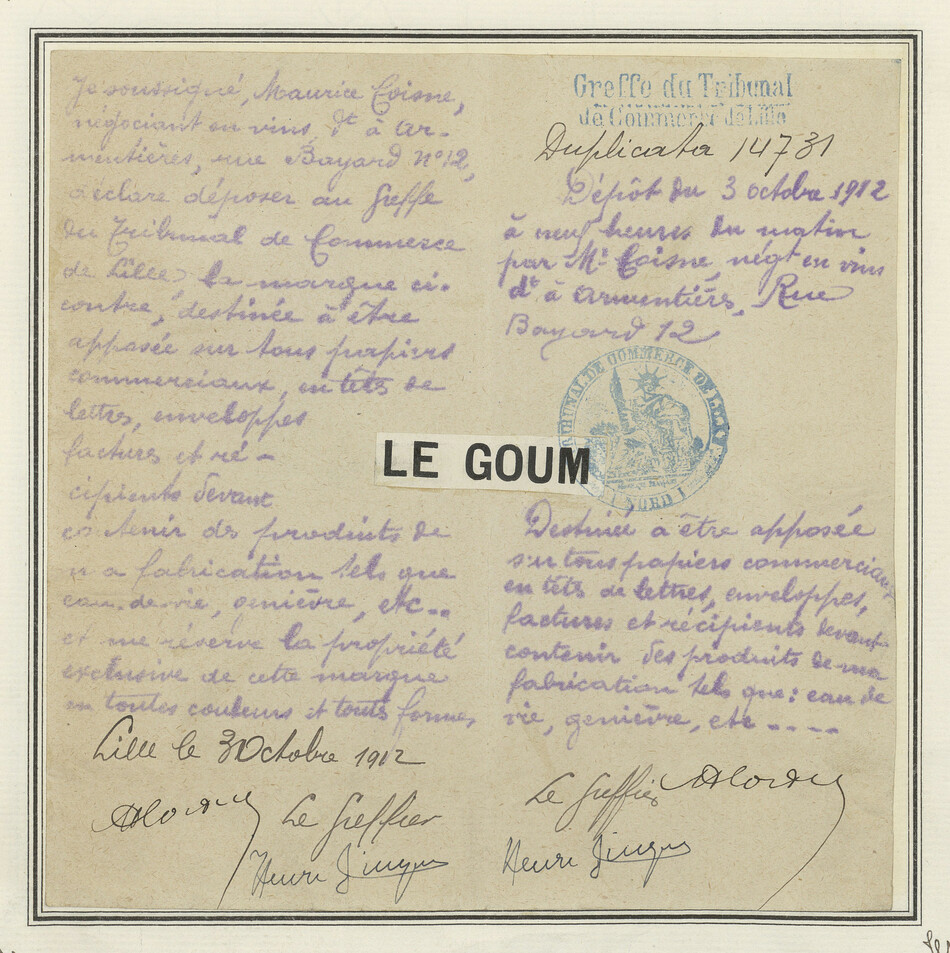 Je soussigné, Maurice Coisne,
négociant en vins, dt à Ar-
mentières, rue Bayard n° 12,
déclare déposer au Greffe
du Tribunal de Commerce
de Lille, la marque ci-
contre, destinée à être
apposée sur tous papiers
commerciaux, en têts de
lettres, enveloppes
factures et ré-
cipients devant
contenir des produits de
m a fabrication tels que
eau-de-vie, genièvre, etc..
et me réserve la propriété
exclusive de cette marque
en toutes couleurs et touts formes
Lille le 3 Octobre 1912
Le Greffier
Henri
LE GOUM
Greffe du Tribunal
de Commerce de Lille
Duplicata 14731
Dépôt du 3 octobre 1912
à neuf heures du matin
par Mr Coisne, négt en vins
dt à Armentières, Rue
Bayard 12
TRIBUNAL DE COMMERCE DE LILLE
NORD
Destinée à être apposée
sur tous papiers commerciaux,
en têts de lettres, enveloppes,
factures et récipients devant
contenir des produits de ma
fabrication tels que: eau de
vie, genièvre, etc -----
Le Greffier
Henri